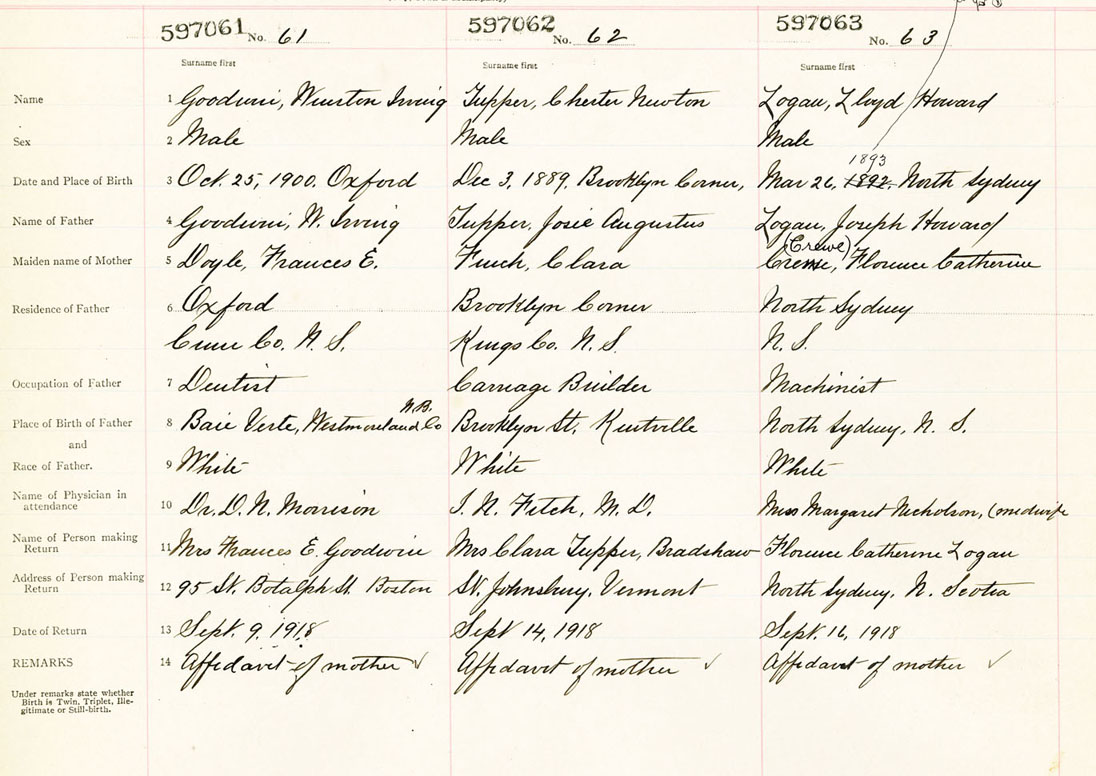 597061 No. 61 597062 No. 62 597063 No. 63
Surname first Surname first Surname first
Name 1 Goodwin, Winston Irving Tupper, Chester Newton Logan, Lloyd Howard
Sex 2 Male Male Male
1893
Date and Place of Birth 3 Oct. 25, 1900. Oxford Dec 3, 1889. Brooklyn Corner, Mar 26, 1892. North Sydney
Name of Father 4 Goodwin, W. Irving Tupper, Josie Augustus Logan, Joseph Howard
(Crewe)
Maiden name of Mother 5 Doyle, Frances E. Finch, Clara Creme, Florence Catherine
Residence of Father 6 Oxford Brooklyn Corner North Sydney
Cum Co. N. S. Kings Co. N. S. N. S.
Occupation of Father 7 Dentist Carriage Builder Machinist
N.B.
Place of Birth of Father 8 Baie Verte, Westmoreland Co Brooklyn St. Kentville North Sydney, N. S.
and
Race of Father. 9 White White White
Name of Physician in
attendance 10 Dr. D. N. Morrison I. N. Fitch, M. D. Miss Margaret Nicholson, (midwife
Name of Person making
Return 11 Mrs Frances E. Goodwin Mrs Clara Tupper, Bradshaw Florence Catherine Logan
Address of Person making
Return 12 95 St. Botolph St. Boston St. Johnsbury, Vermont North Sydney, N. Scotia
Date of Return 13 Sept. 9, 1918 Sept 14, 1918 Sept. 16, 1918
REMARKS 14 Affidavit of mother ✓ Affidavit of mother ✓ Affidavit of mother ✓
Under remarks state whether
Birth is Twin, Triplet, Ille-
gitimate or Still-birth.